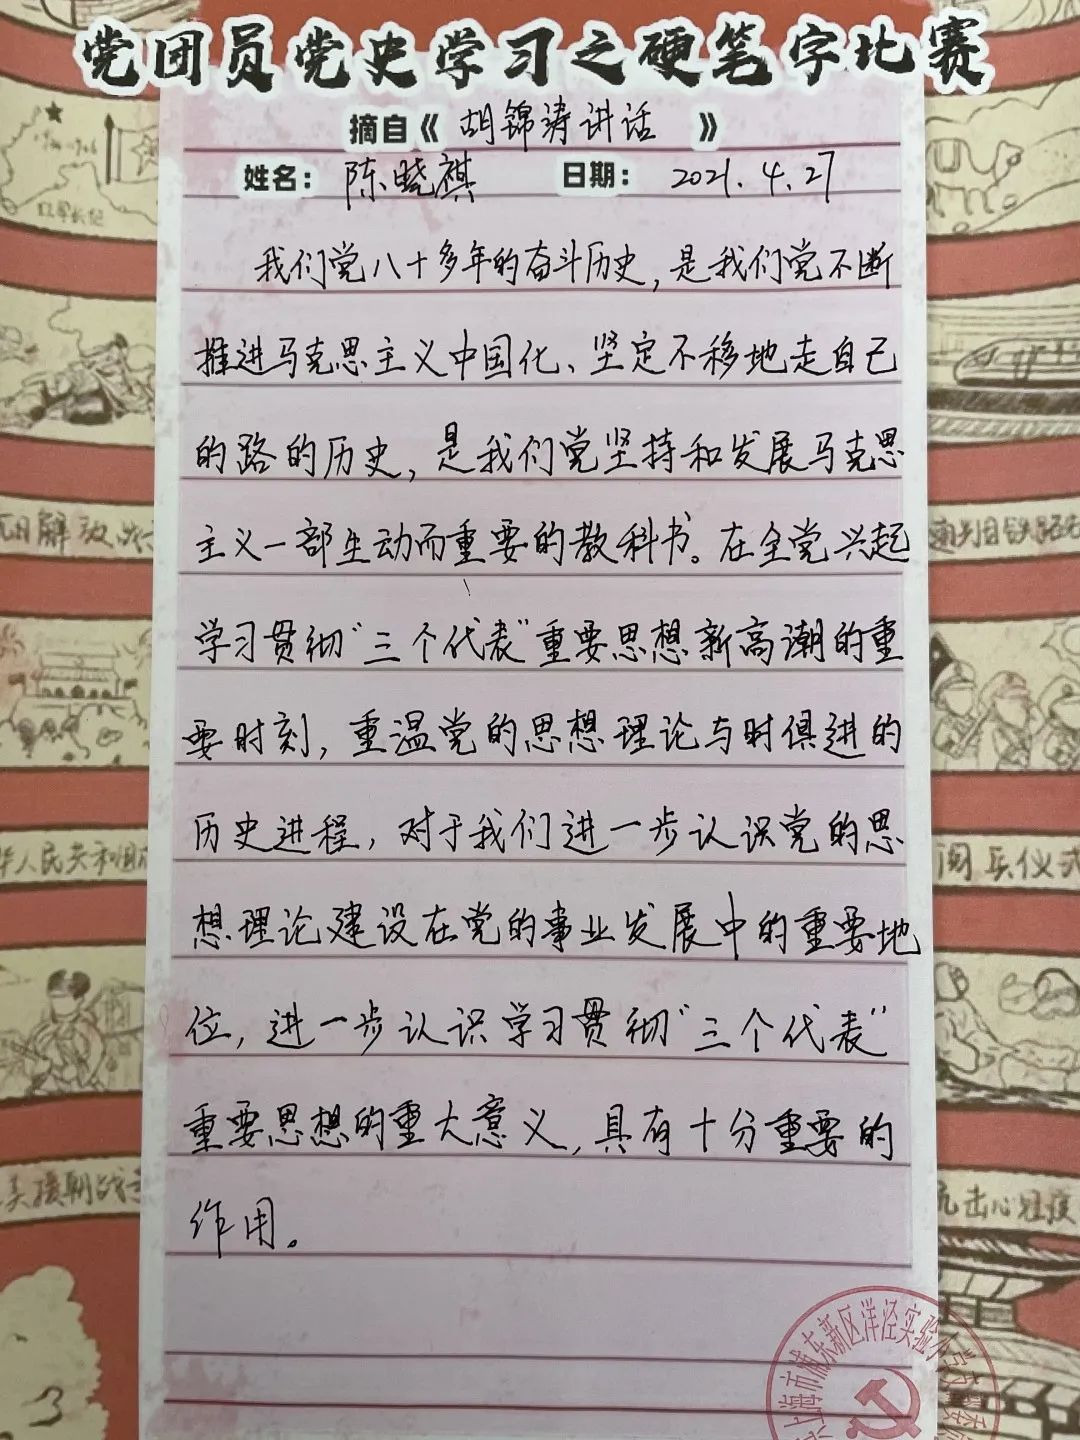 党团员党史学习之硬笔字比赛
摘自《胡锦涛讲话》
姓名：陈晓祺 日期：2021.4.27
我们党八十多年的奋斗历史，是我们党不断
推进马克思主义中国化、坚定不移地走自己
的路的历史，是我们党坚持和发展马克思
主义一部生动而重要的教科书。在全党兴起
学习贯彻“三个代表”重要思想新高潮的重
要时刻，重温党的思想理论与时俱进的
历史进程，对于我们进一步认识党的思
想理论建设在党的事业发展中的重要地
位，进一步认识学习贯彻“三个代表”
重要思想的重大意义，具有十分重要的
作用。
红军长征
解放
华人民共和国
阅兵仪式
美援朝战
抗击心冠疫
上海市浦东新区洋泾实验小学
3